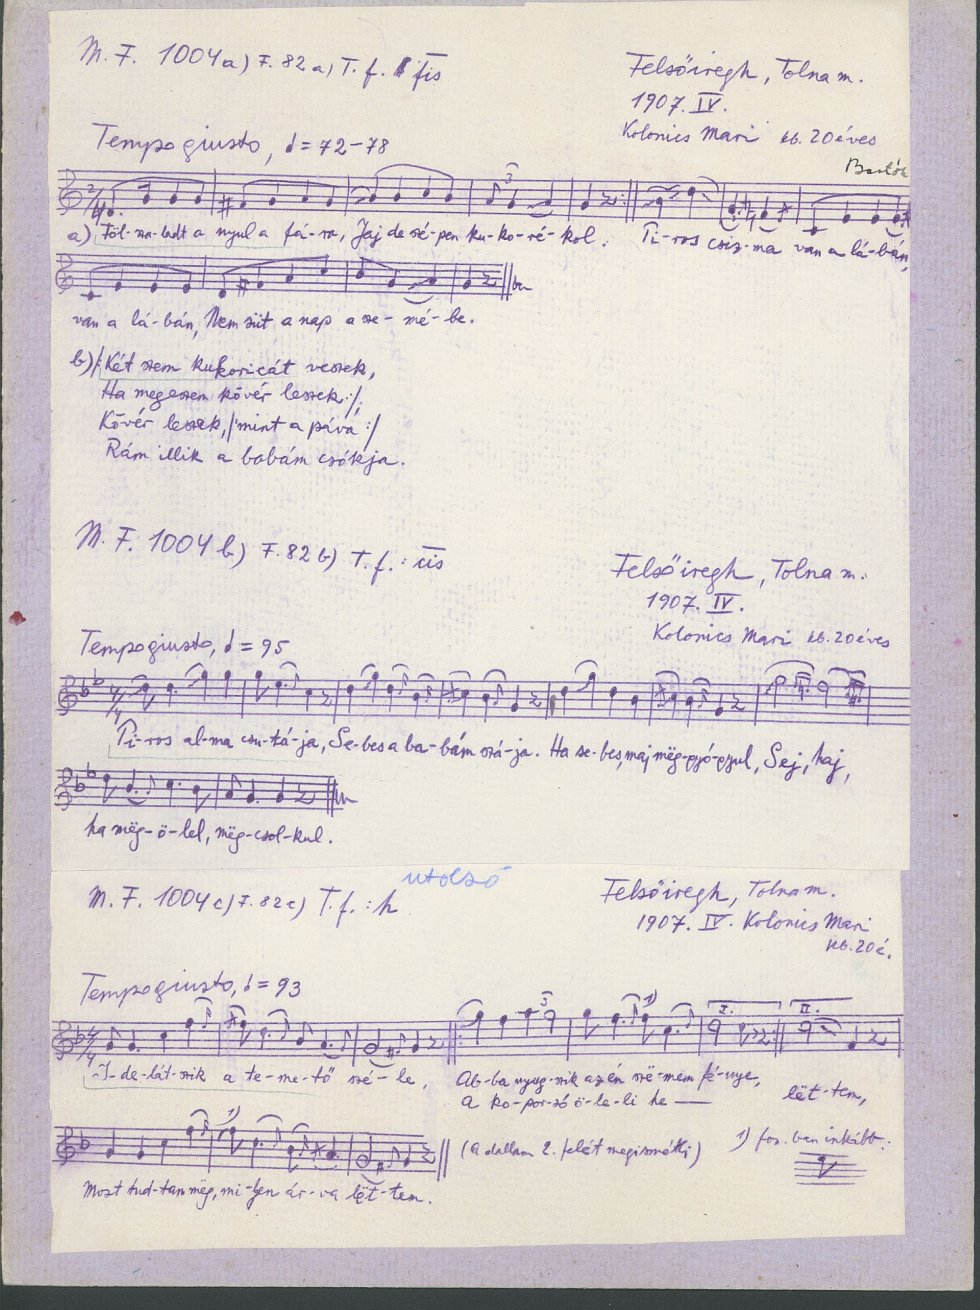 M. F. 1004 a) F. 82 a) T. f. fis
Felsőiregh, Tolna m.
1907. IV.
Kolonics Mari kb. 20 éves
Bartók
Tempo giusto, = 72-78
2/4
3
a) Föl-sza-ladt a nyul a fá-ra, Jaj de szé-pen ku-ko-ré-kol. Pi-ros csiz-ma van a lá-bán,
van a lá-bán, Nem süt a nap a sze-mé-be.
b) /: Két szem kukoricát veszek,
Ha megeszem kövér leszek :/;
Kövér leszek, /: mint a páva :/
Rám illik a babám csókja.
M. F. 1004 b) F. 82 b) T. f.: cis
Felsőiregh, Tolna m.
1907. IV.
Kolonics Mari kb. 20 éves
Tempo giusto, = 95
4/4
Pi-ros al-ma csu-tá-ja, Se-bes a ba-bám szá-ja. Ha se-bes, maj mëg-gyó-gyul, Sej, haj,
ha mëg-ö-lel, mëg-csol-kul.
utolsó
M. F. 1004 c) F. 82 c) T. f.: h
Felsőiregh, Tolna m.
1907. IV. Kolonics Mari
kb. 20 é.
Tempo giusto, = 93
4/4 3 1) I. II.
I-de-lát-szik a te-me-tő szé-le, Ab-ba nyug-szik az én szë-mem fé-nye,
A ko-por-só ö-le-li he lët-tem,
1)
(A dallam 2. felét megismétli) 1) fon. ban inkább:
Most tud-tam mëg, mi-lyen ár-va lët-tem.